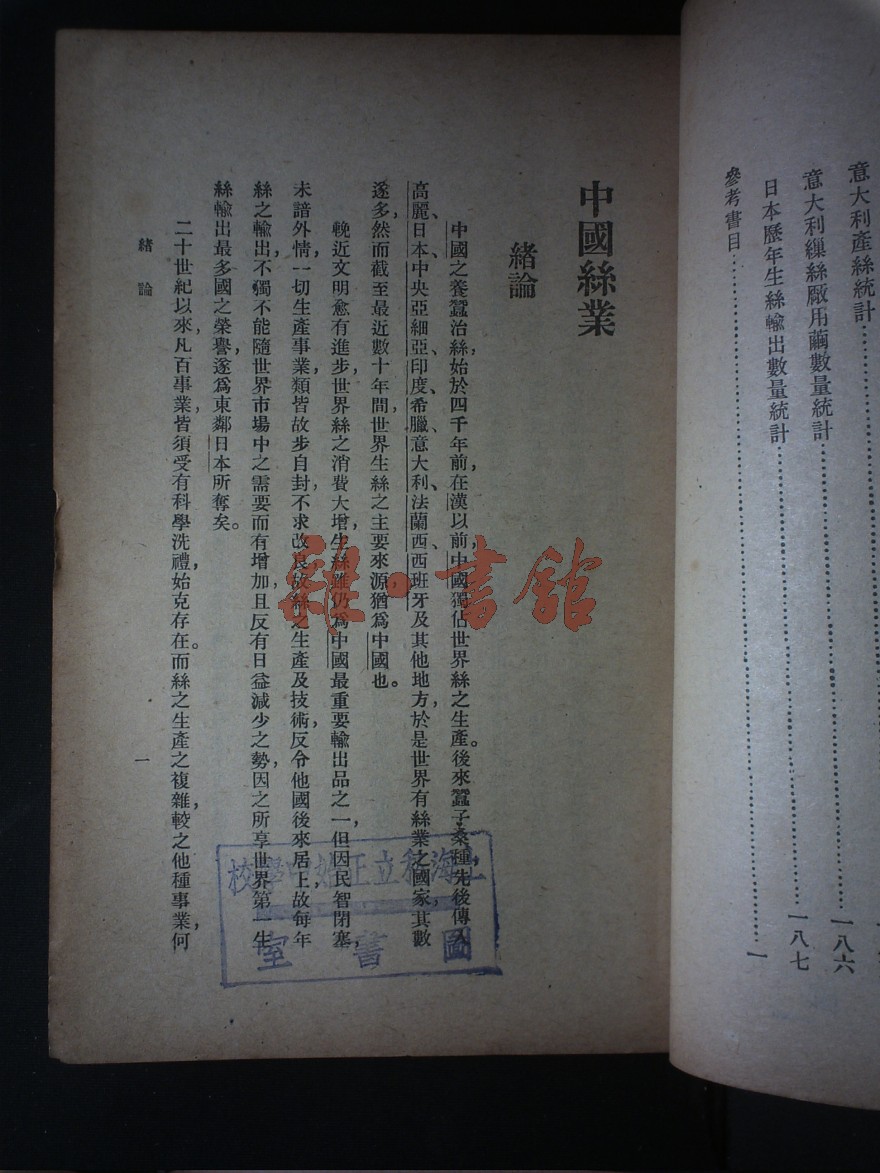 意大利產絲統計
意大利繅絲廠用繭數量統計
日本歷年生絲輸出數量統計⋯⋯一八六
參考書目⋯⋯一
一八七
中國絲業
緒論
中國之養蠶治絲,始於四千年前,在漢以前中國獨佔世界絲之生產。後來蠶子桑種,先後傳入
高麗、日本、中央亞細亞、印度、希臘、意大利、法蘭西、西班牙及其他地方,於是世界有絲業之國家,其數
遂多,然而截至最近數十年間,世界生絲之主要來源,猶為中國也。
輓近文明愈有進步,世界絲之消費大增,生絲雖仍為中國最重要輸出品之一,但因民智閉塞,
未諳外情,一切生產事業,類皆故步自封,不求改良,故絲之生產及技術,反令他國後來居上,故每年
絲之輸出,不獨不能隨世界市場中之需要而有增加,且反有日益減少之勢,因之所享世界第一生
絲輸出最多國之榮譽,遂為東鄰日本所奪矣。
二十世紀以來,凡百事業,皆須受有科學洗禮,始克存在。而絲之生產之複雜,較之他種事業,何
緒論
一
上海私立正始中學校
圖書室
雜·書館